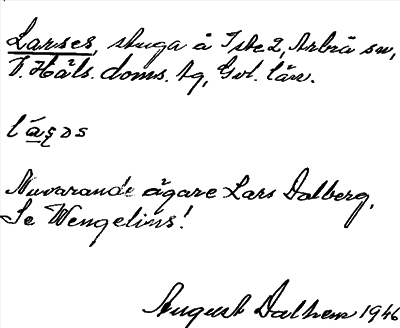 Larses, stuga å Iste 2, Arbrå sn,
V. Häls. doms. tg, Gvl. län.
Nuvarande ägare Lars Dalberg.
Se Wengelins!
August Dalhem 1946